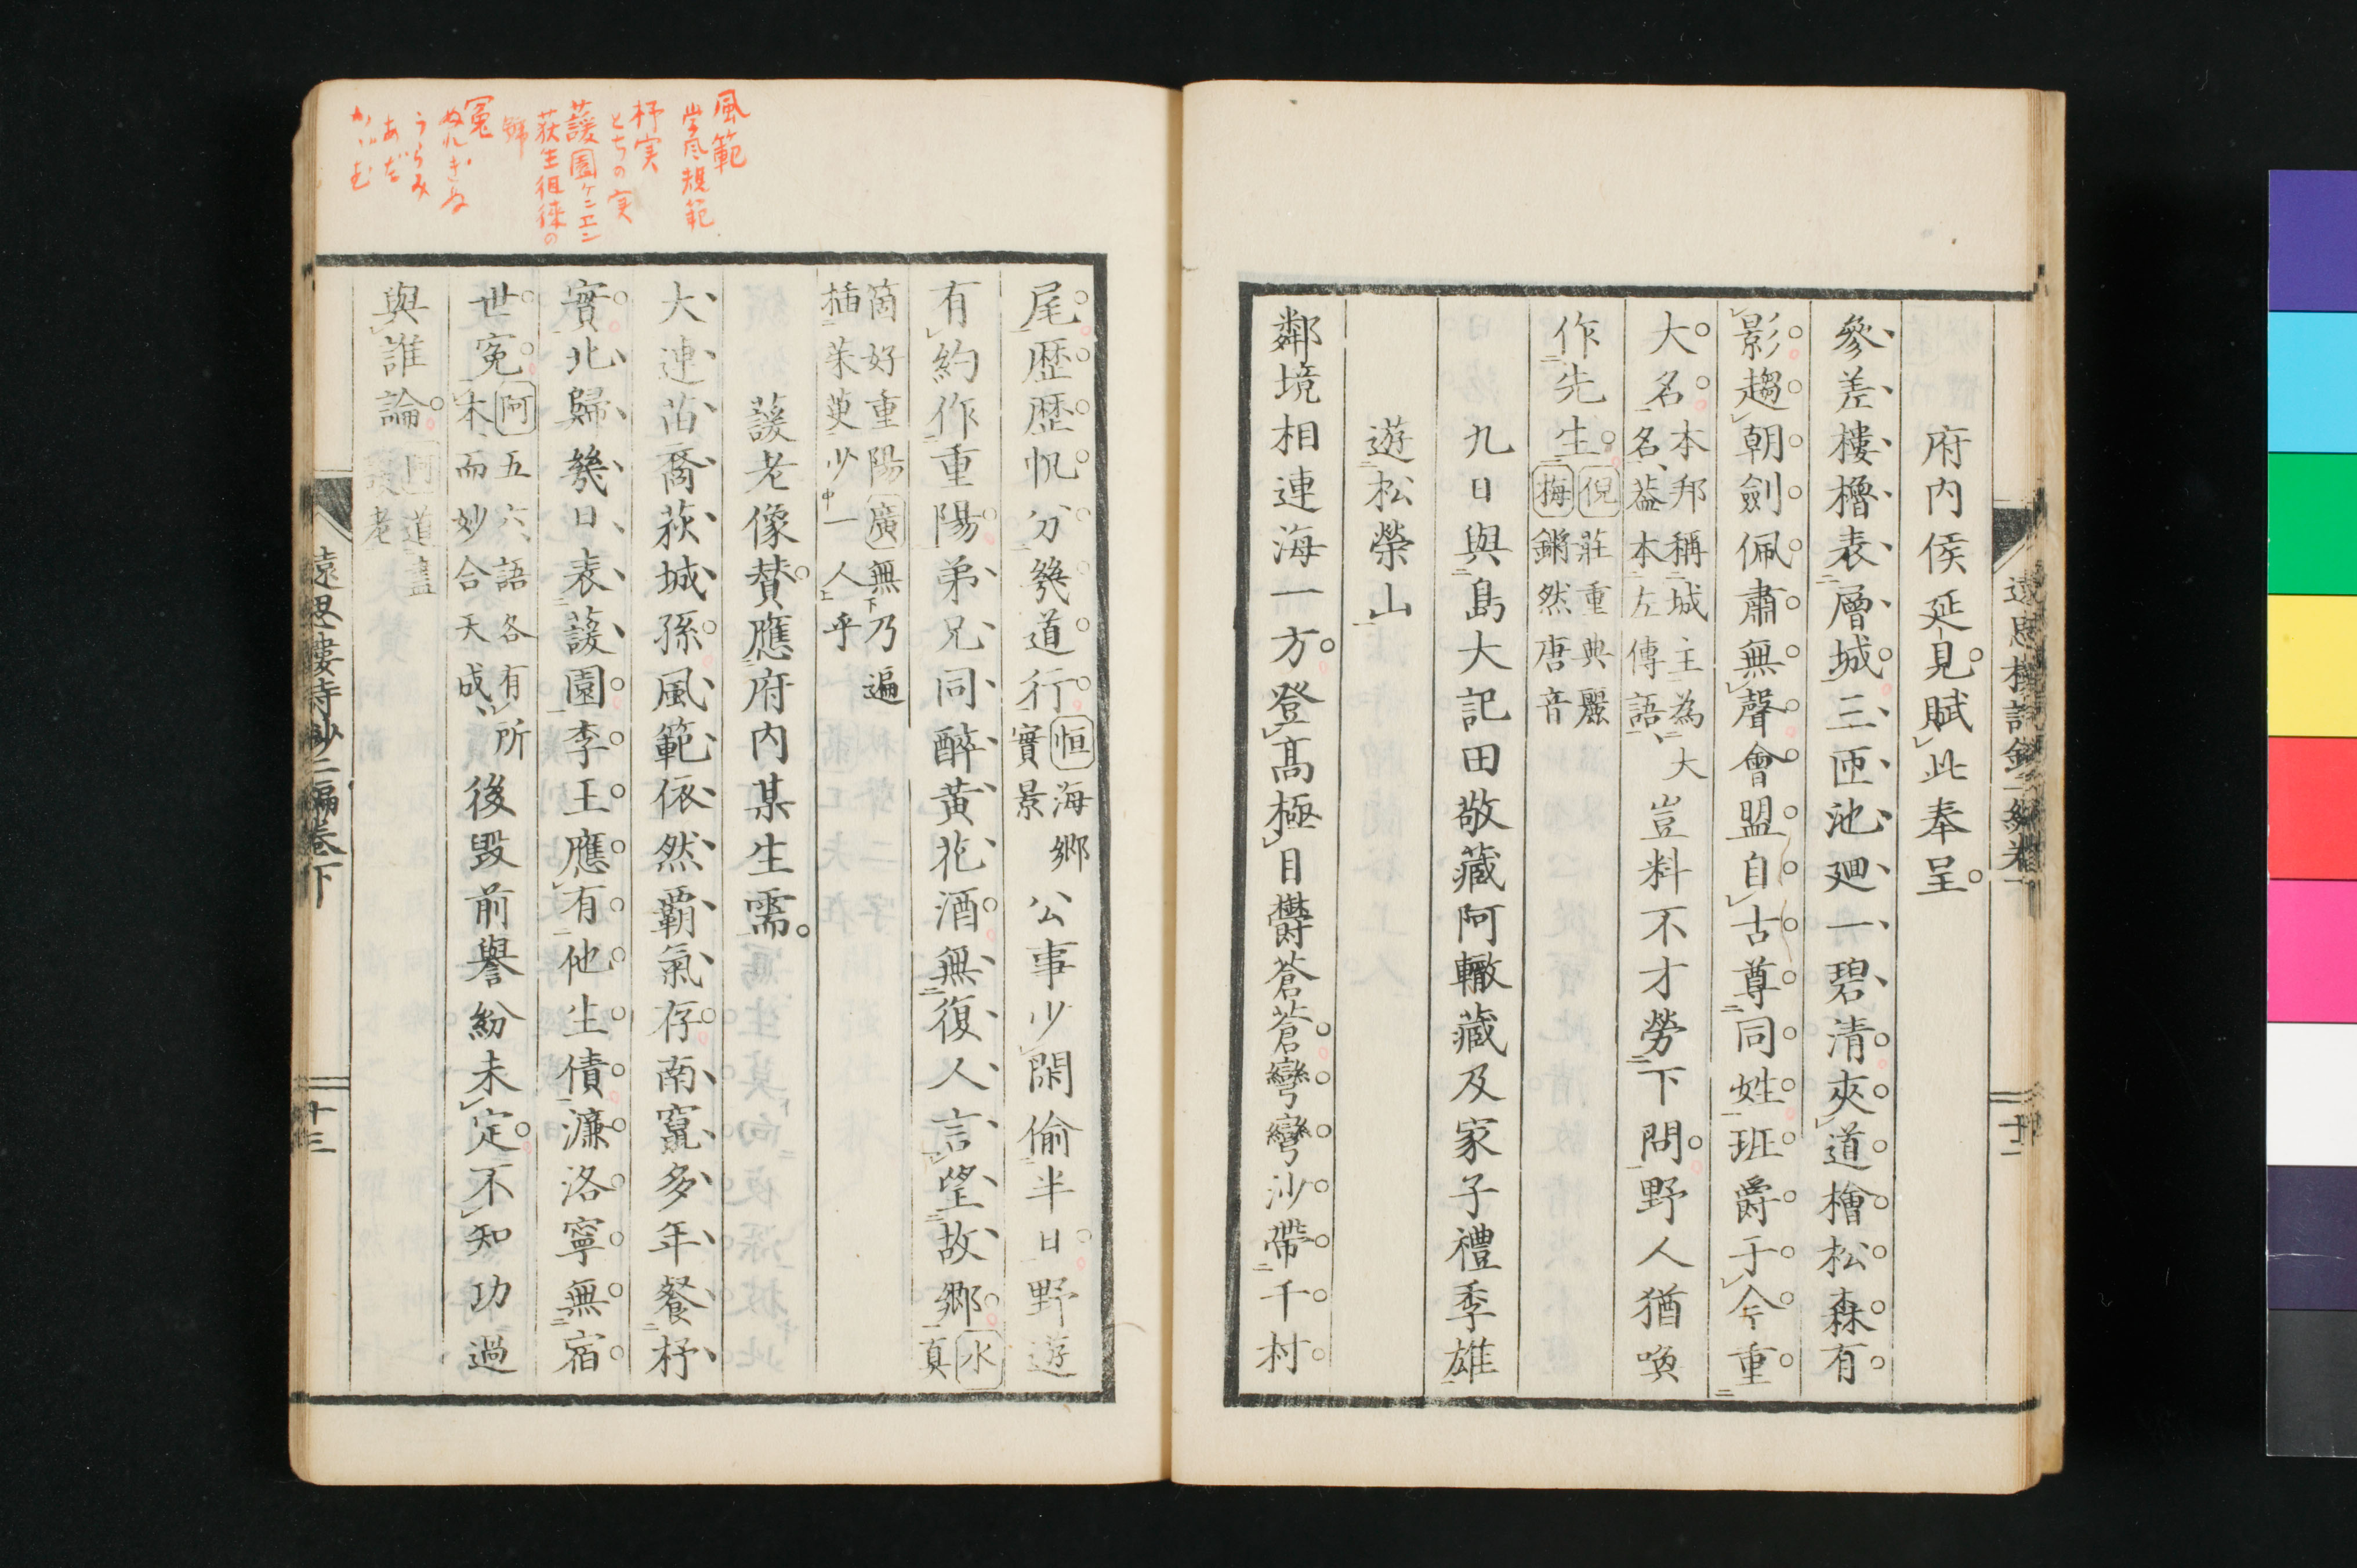 府内侯延見賦此奉呈
參差樓櫓表層城三匝池廻一碧清夾道檜松森有
影趨朝劍佩肅無聲會盟自古尊同姓班爵于今重
大名本邦稱城主為大名、蓋本左傳語、豈料不才勞下問野人猶喚
作先生倪莊重典麗梅鏘然唐音
九日與島大記田敬藏阿轍藏及家子禮季雄
遊松榮山
鄰境相連海一方登高極目欝蒼蒼彎彎沙帶千村
尾歴歴帆分幾道行恒海郷實景公事少閑偷半日野遊
有約作重陽弟兄同醉黃花酒無復人言望故郷水真
箇好重陽廣無乃遍插茱萸少一人乎
蘐老像賛應府内某生需
大連苗裔荻城孫風範依然覇氣存南竄多年餐杼
實北歸幾日表蘐園李王應有他生債濂洛寧無宿
世冤阿五六、語各有所本、而妙合天成、後毀前譽紛未定不知功過
與誰論阿道盡蘐老
遠思樓詩鈔二編卷下
十三
風範
学風規範
杼実
とちの実
蘐園ケンエン
荻生徂徠の
号
冤
ぬれぎぬ
うらみ
あだ
かゞむ